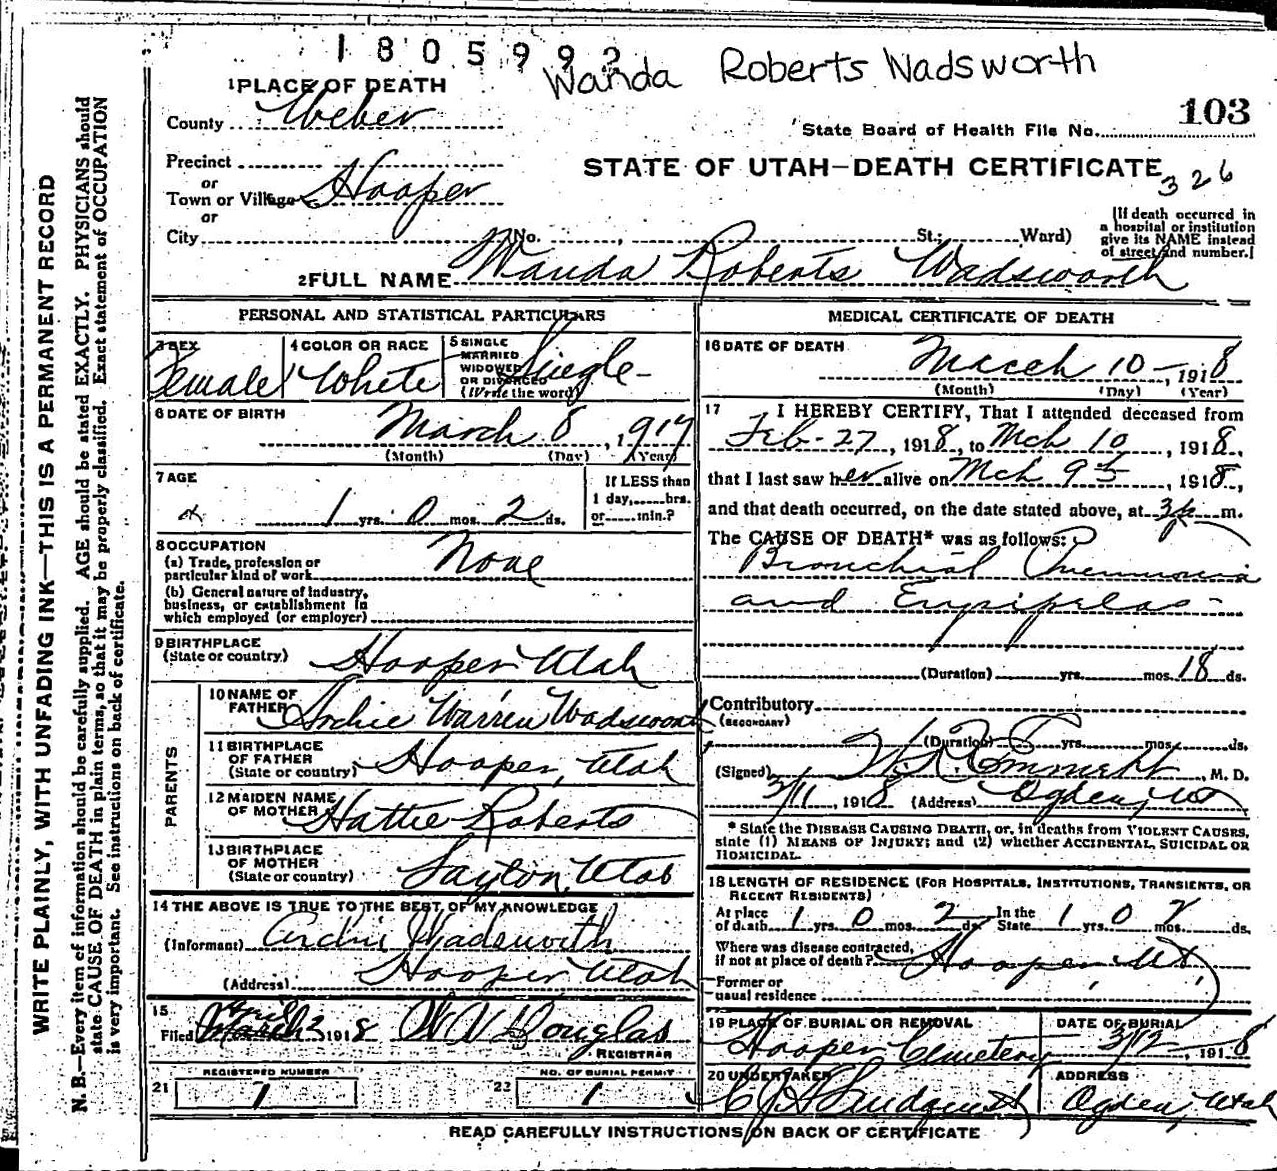 1805992
Wanda Roberts Wadsworth
1 PLACE OF DEATH
103
County Weber
State Board of Health File No.
Precinct
STATE OF UTAH—DEATH CERTIFICATE
326
or
Town or Village Hooper
or
City No. St.; Ward)
[If death occurred in
a hospital or institution
give its NAME instead
of street and number.]
2 FULL NAME Wanda Roberts Wadsworth
PERSONAL AND STATISTICAL PARTICULARS
3 SEX Female
4 COLOR OR RACE White
5 SINGLE
MARRIED
WIDOWED
OR DIVORCED
(Write the word)
Single
6 DATE OF BIRTH March 8, 1917
(Month) (Day) (Year)
7 AGE
1 yrs. 0 mos. 2 ds.
If LESS than
1 day, hrs.
or min.?
8 OCCUPATION
(a) Trade, profession or
particular kind of work None
(b) General nature of industry,
business, or establishment in
which employed (or employer)
9 BIRTHPLACE
(State or country) Hooper Utah
PARENTS
10 NAME OF
FATHER Archie Warren Wadsworth
11 BIRTHPLACE
OF FATHER
(State or country) Hooper, Utah
12 MAIDEN NAME
OF MOTHER Hattie Roberts
13 BIRTHPLACE
OF MOTHER
(State or country) Layton, Utah
14 THE ABOVE IS TRUE TO THE BEST OF MY KNOWLEDGE
(Informant) Archie Wadsworth
(Address) Hooper Utah
15
Filed April 3 1918 W V Douglas
REGISTRAR
REGISTERED NUMBER
21 1
NO. OF BURIAL PERMIT
22 1
MEDICAL CERTIFICATE OF DEATH
16 DATE OF DEATH
March 10, 1918
(Month) (Day) (Year)
17 I HEREBY CERTIFY, That I attended deceased from
Feb-27, 1918, to Mch 10, 1918,
that I last saw her alive on Mch 9th, 1918,
and that death occurred, on the date stated above, at m.
The CAUSE OF DEATH* was as follows:
Bronchial Pneumonia
and Erysipelas
(Duration) yrs. mos. 18 ds.
Contributory
(SECONDARY)
(Duration) yrs. mos. ds.
(Signed) M. D.
3/11, 1918 (Address) Ogden, Ut
* State the DISEASE CAUSING DEATH, or, in deaths from VIOLENT CAUSES,
state (1) MEANS OF INJURY; and (2) whether ACCIDENTAL, SUICIDAL OR
HOMICIDAL.
18 LENGTH OF RESIDENCE (FOR HOSPITALS, INSTITUTIONS, TRANSIENTS, OR
RECENT RESIDENTS)
At place
of death 1 yrs. 0 mos. 2 ds.
In the
State 1 yrs. 0 mos. 2 ds.
Where was disease contracted,
if not at place of death? Hooper Ut
Former or
usual residence
19 PLACE OF BURIAL OR REMOVAL
Hooper Cemetery
DATE OF BURIAL
3/12, 1918
20 UNDERTAKER
ADDRESS
Ogden, Utah
READ CAREFULLY INSTRUCTIONS ON BACK OF CERTIFICATE
WRITE PLAINLY, WITH UNFADING INK—THIS IS A PERMANENT RECORD
N. B.—Every item of information should be carefully supplied. AGE should be stated EXACTLY. PHYSICIANS should
state CAUSE OF DEATH in plain terms, so that it may be properly classified. Exact statement of OCCUPATION
is very important. See instructions on back of certificate.